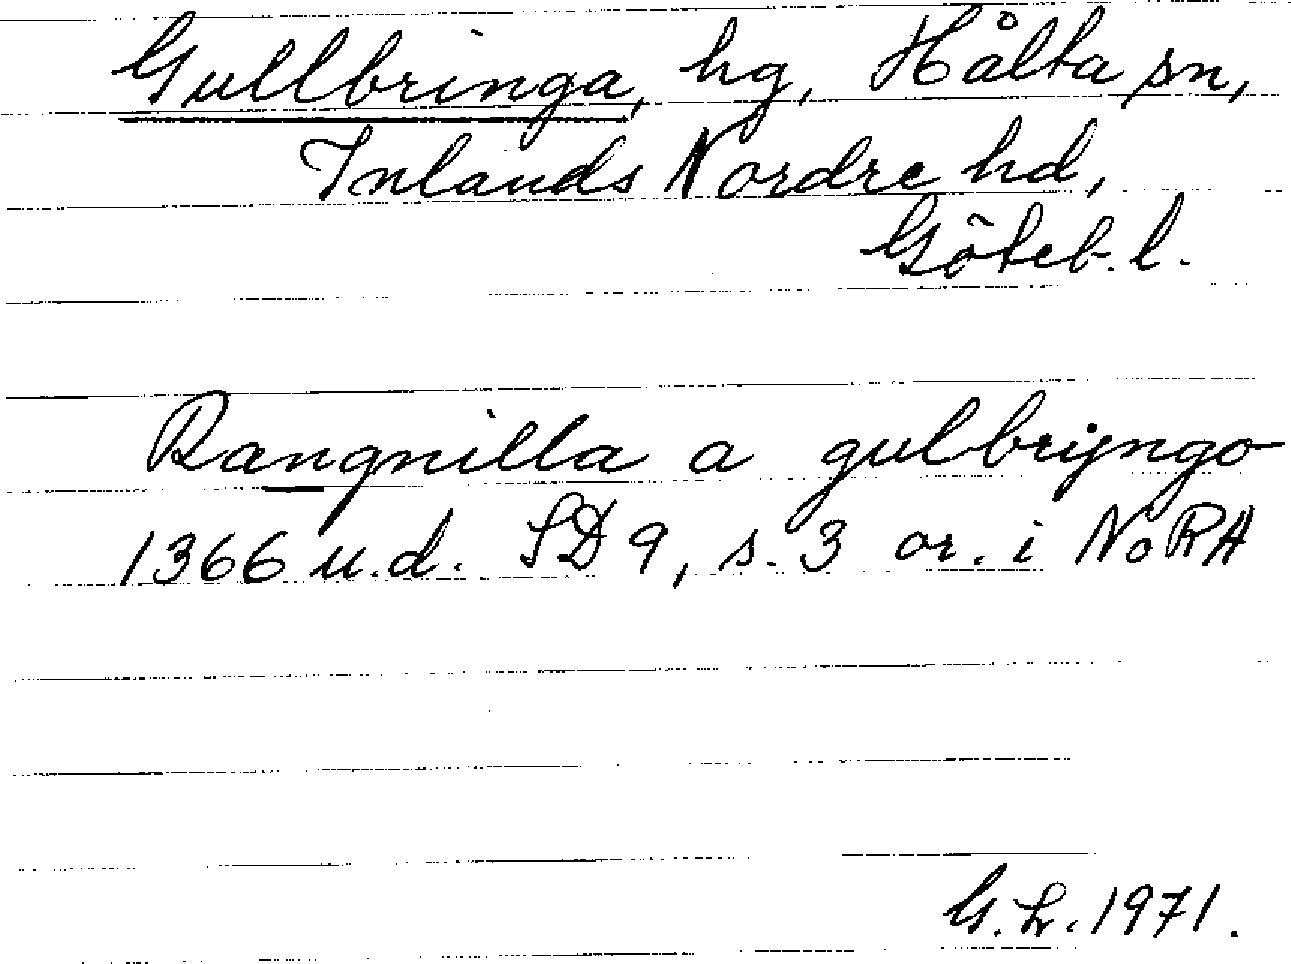 Gullbringa, hg, Hålta sn,
Inlands Nordre hd,
Göteb. l.
Rangnilla a gulbryngo
1366 u.d. SD 9, s. 3 or. i NoRA
G. L. 1971.